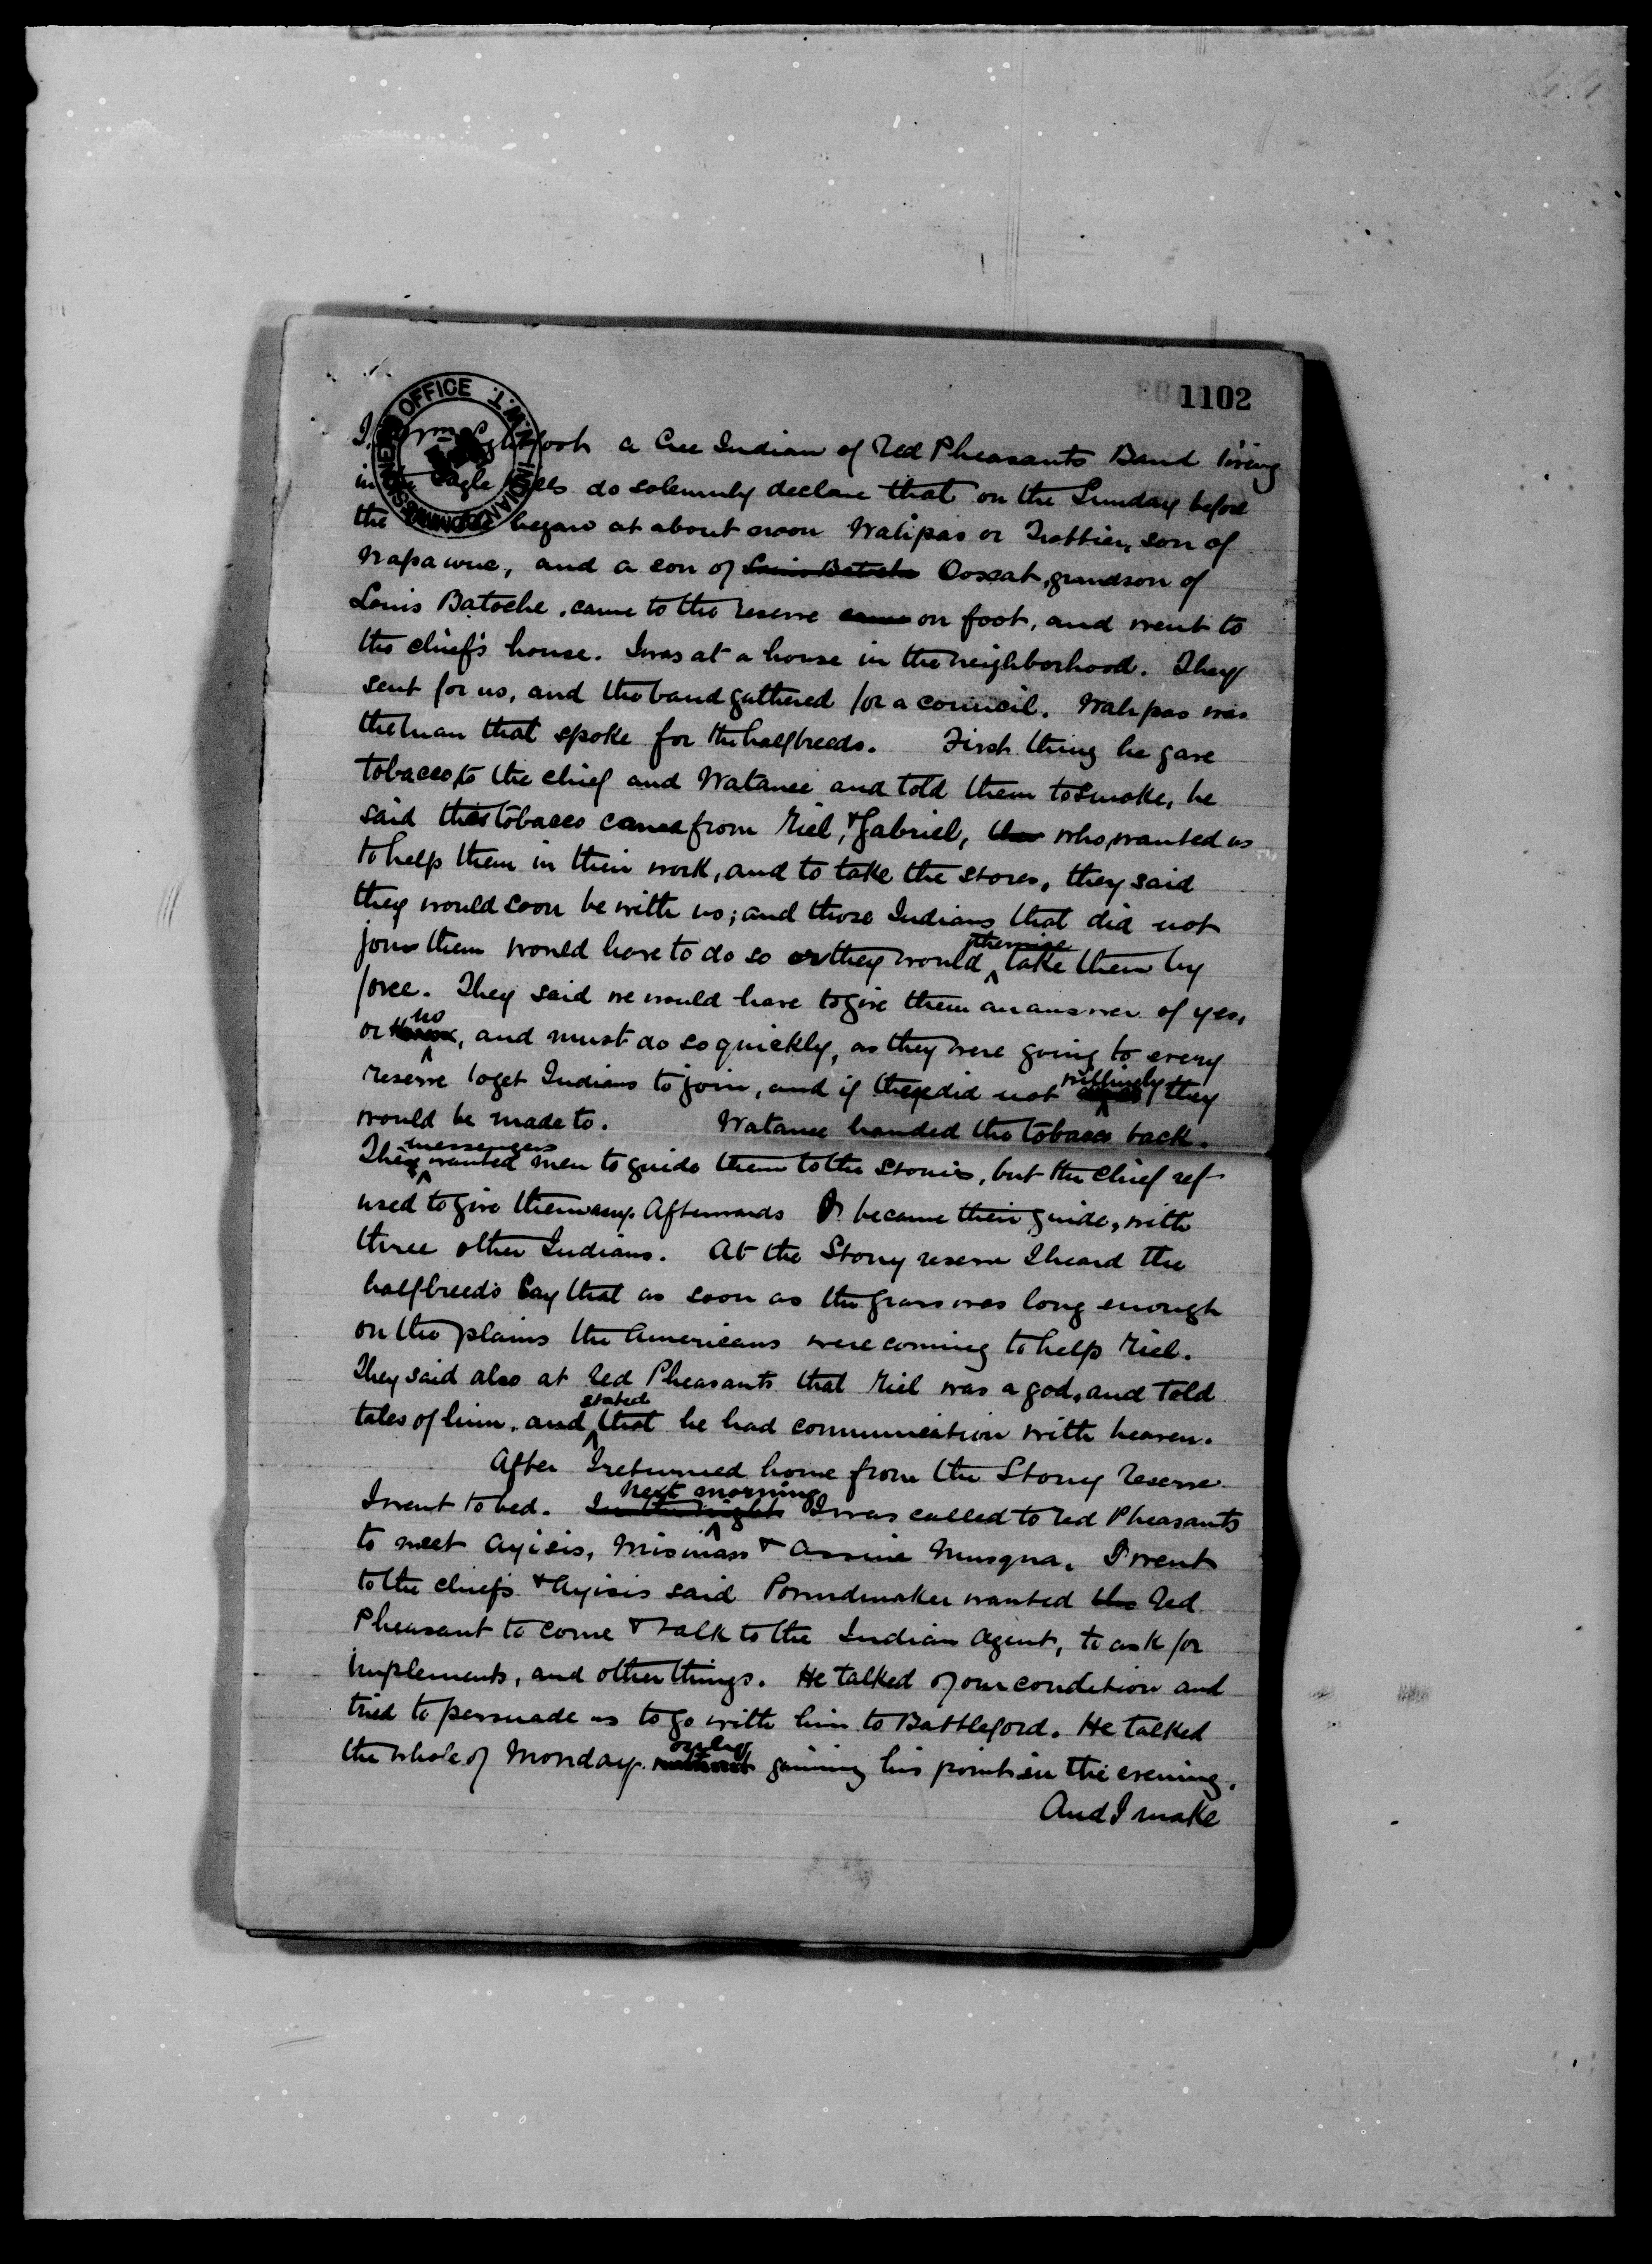 1102
INDIAN COMMISSIONER'S OFFICE N.W.T.
I, Wm Lightfoot a Cree Indian of Red Pheasants Band living
in the Eagle Hills do solemnly declare that on the Sunday before
the began at about noon Walipas or Trottier, son of
Wapawne, and a son of Louis Batoche Ooscat, grandson of
Louis Batoche, came to the reserve came on foot, and went to
the chief's house. I was at a house in the neighborhood. They
sent for us, and the band gathered for a council. Walipas was
the man that spoke for the halfbreeds. First thing he gave
tobacco, to the chief and Watanee and told them to smoke, he
said this tobacco came from Riel, & Gabriel, the who, wanted us
to help them in their work, and to take the stores, they said
they would soon be with us; and those Indians that did not
join them would have to do so or they would otherwise take them by
force. They said we would have to give them an answer of yes,
or no, and must do so quickly, as they were going to every
reserve to get Indians to join, and if they did not willingly they
would be made to. Watanee handed the tobacco back.
They messengers wanted men to guide them to the Stonies, but the chief ref-
used to give them any. Afterwards I became their guide, with
three other Indians. At the Stony reserve I heard the
halfbreeds say that as soon as the grass was long enough
on the plains the Americans were coming to help Riel.
They said also at Red Pheasants that Riel was a god, and told
tales of him, and stated that he had communication with heaven.
After I returned home from the Stoney Reserve
I went to bed. In the night next morning I was called to Red Pheasants
to meet Ayisis, Misinass & Assine Musqua. I went
to the chiefs & Ayisis said Poundmaker wanted the Red
Pheasant to come & talk to the Indian Agent, to ask for
implements, and other things. He talked of our condition and
tried to persuade us to go with him to Battleford. He talked
the whole of Monday without only gaining his point in the evening.
And I make